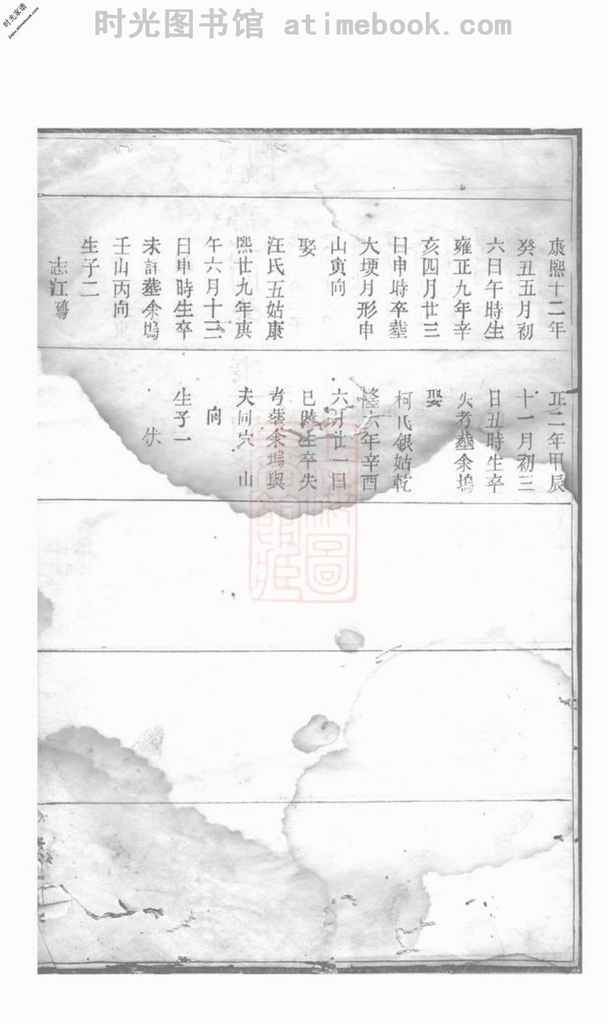 时光图书馆 atimebook.com
时光家谱
www.atimebook.com
康熙十二年
癸丑五月初
六日午時生
雍正九年辛
亥四月廿三
日申時卒塟
大埂月形申
山寅向
娶
汪氏五姑康
熙廿九年庚
午六月十三
日申時生卒
未詳塟余塢
壬山丙向
生子二
志江
正二年甲辰
十一月初三
日丑時生卒
失考塟余塢
娶
柯氏銀姑乾
隆六年辛酉
六月廿一日
巳時生卒失
考塟余塢與
夫同穴 山
向
生子一